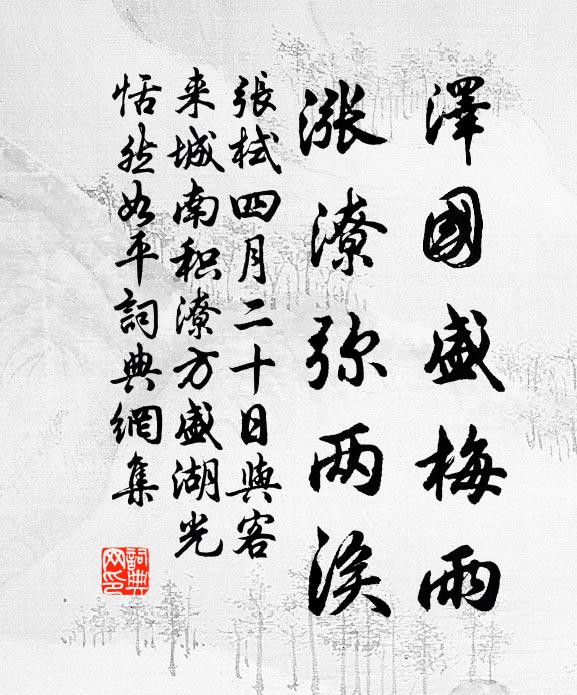 澤國盛梅雨
漲潦弥两涘
張栻四月二十日與客
来城南积潦方盛湖光
恬然如平詞典網集
詞典网印